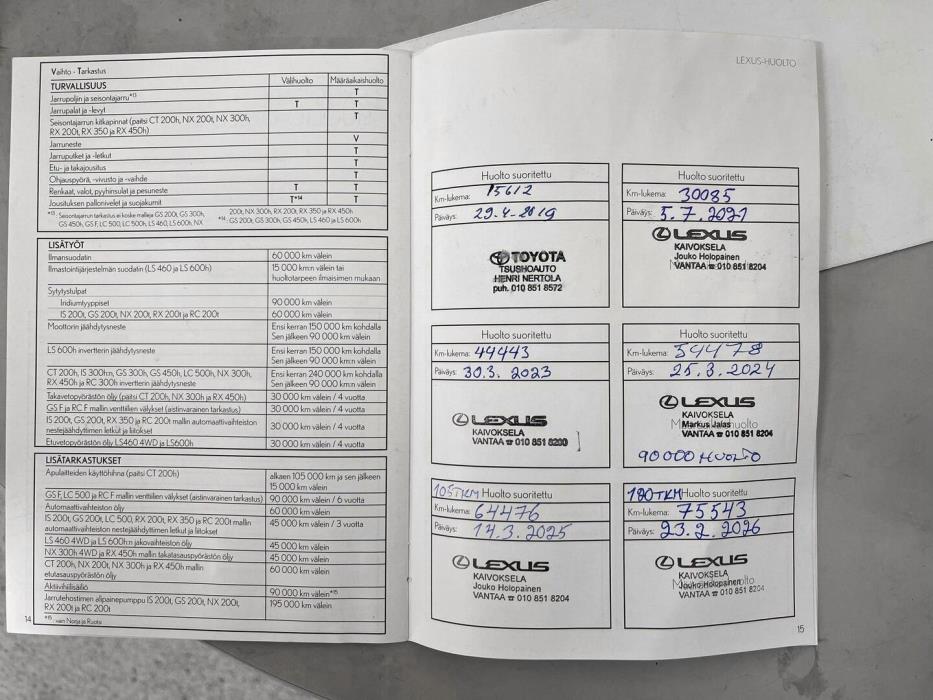 Vaihto - Tarkastus
TURVALLISUUS Välihuolto Määräaikaishuolto
Jarrupoljin ja seisontajarru*13 T
Jarrupalat ja -levyt T T
Seisontajarrun kitkapinnat (paitsi CT 200h, NX 200t, NX 300h, T
RX 200t, RX 350 ja RX 450h)
Jarruneste V
Jarruputket ja -letkut T
Etu- ja takajousitus T
Ohjauspyörä, -vivusto ja -vaihde T
Renkaat, valot, pyyhinsulat ja pesuneste T T
Jousituksen pallonivelet ja suojakumit T*14 T
*13 : Seisontajarrun tarkastus ei koske malleja GS 200t, GS 300h,
GS 450h, GS F, LC 500, LC 500h, LS 460, LS 600h, NX
200t, NX 300h, RX 200t, RX 350 ja RX 450h
*14 : GS 200t, GS 300h, GS 450h, LS 460 ja LS 600h
LISÄTYÖT
Ilmansuodatin 60 000 km välein
Ilmastointijärjestelmän suodatin (LS 460 ja LS 600h) 15 000 km:n välein tai
huoltotarpeen ilmaisimen mukaan
Sytytystulpat
Iridiumtyyppiset 90 000 km välein
IS 200t, GS 200t, NX 200t, RX 200t ja RC 200t 60 000 km välein
Moottorin jäähdytysneste Ensi kerran 150 000 km kohdalla
Sen jälkeen 90 000 km:n välein
LS 600h invertterin jäähdytysneste Ensi kerran 150 000 km kohdalla
Sen jälkeen 90 000 km:n välein
CT 200h, IS 300h:n, GS 300h, GS 450h, LC 500h, NX 300h, Ensi kerran 240 000 km kohdalla
RX 450h ja RC 300h invertterin jäähdytysneste Sen jälkeen 90 000 km:n välein
Takavetopyörästön öljy (paitsi CT 200h, NX 300h ja RX 450h) 30 000 km välein / 4 vuotta
GS F ja RC F mallin venttiilien välykset (aistinvarainen tarkastus) 30 000 km välein / 4 vuotta
IS 200t, GS 200t, RX 350 ja RC 200t mallin automaattivaihteiston 30 000 km välein / 4 vuotta
nestejäähdyttimen letkut ja liitokset
Etuvetopyörästön öljy LS460 4WD ja LS600h 30 000 km välein / 4 vuotta
LISÄTARKASTUKSET
Apulaitteiden käyttöhihna (paitsi CT 200h) alkaen 105 000 km ja sen jälkeen
15 000 km välein
GS F, LC 500 ja RC F mallin venttiilien välykset (aistinvarainen tarkastus) 90 000 km välein / 6 vuotta
Automaattivaihteiston öljy 60 000 km välein
IS 200t, GS 200t, LC 500, RX 200t, RX 350 ja RC 200t mallin 45 000 km välein / 3 vuotta
automaattivaihteiston nestejäähdyttimen letkut ja liitokset
LS 460 4WD ja LS 600h:n jakovaihteiston öljy 45 000 km välein
NX 300h 4WD ja RX 450h mallin takatasauspyörästön öljy 45 000 km välein
CT 200h, NX 200t, NX 300h ja RX 450h mallin 60 000 km välein
etutasauspyörästön öljy
Aktiivihiilisäiliö 90 000 km välein*15
Jarrutehostimen alipainepumppu IS 200t, GS 200t, NX 200t, 195 000 km välein
RX 200t ja RC 200t
*15 : vain Norja ja Ruotsi
14
LEXUS-HUOLTO
Huolto suoritettu
Km-lukema: 15612
Päiväys: 29.4.2019
TOYOTA
TSUSHOAUTO
HENRI NERTOLA
puh. 010 851 8572
Huolto suoritettu
Km-lukema: 30085
Päiväys: 5.7.2021
LEXUS
KAIVOKSELA
Jouko Holopainen
VANTAA ☎ 010 851 8204
Huolto suoritettu
Km-lukema: 44443
Päiväys: 30.3.2023
LEXUS
KAIVOKSELA
VANTAA ☎ 010 851 8200
Huolto suoritettu
Km-lukema: 54478
Päiväys: 25.3.2024
LEXUS
KAIVOKSELA
Markus Jalas
VANTAA ☎ 010 851 8204
90000 HUOLTO
105TKM Huolto suoritettu
Km-lukema: 64476
Päiväys: 14.3.2025
LEXUS
KAIVOKSELA
Jouko Holopainen
VANTAA ☎ 010 851 8204
180TKM Huolto suoritettu
Km-lukema: 75543
Päiväys: 23.2.2026
LEXUS
KAIVOKSELA
Jouko Holopainen
VANTAA ☎ 010 851 8204
15